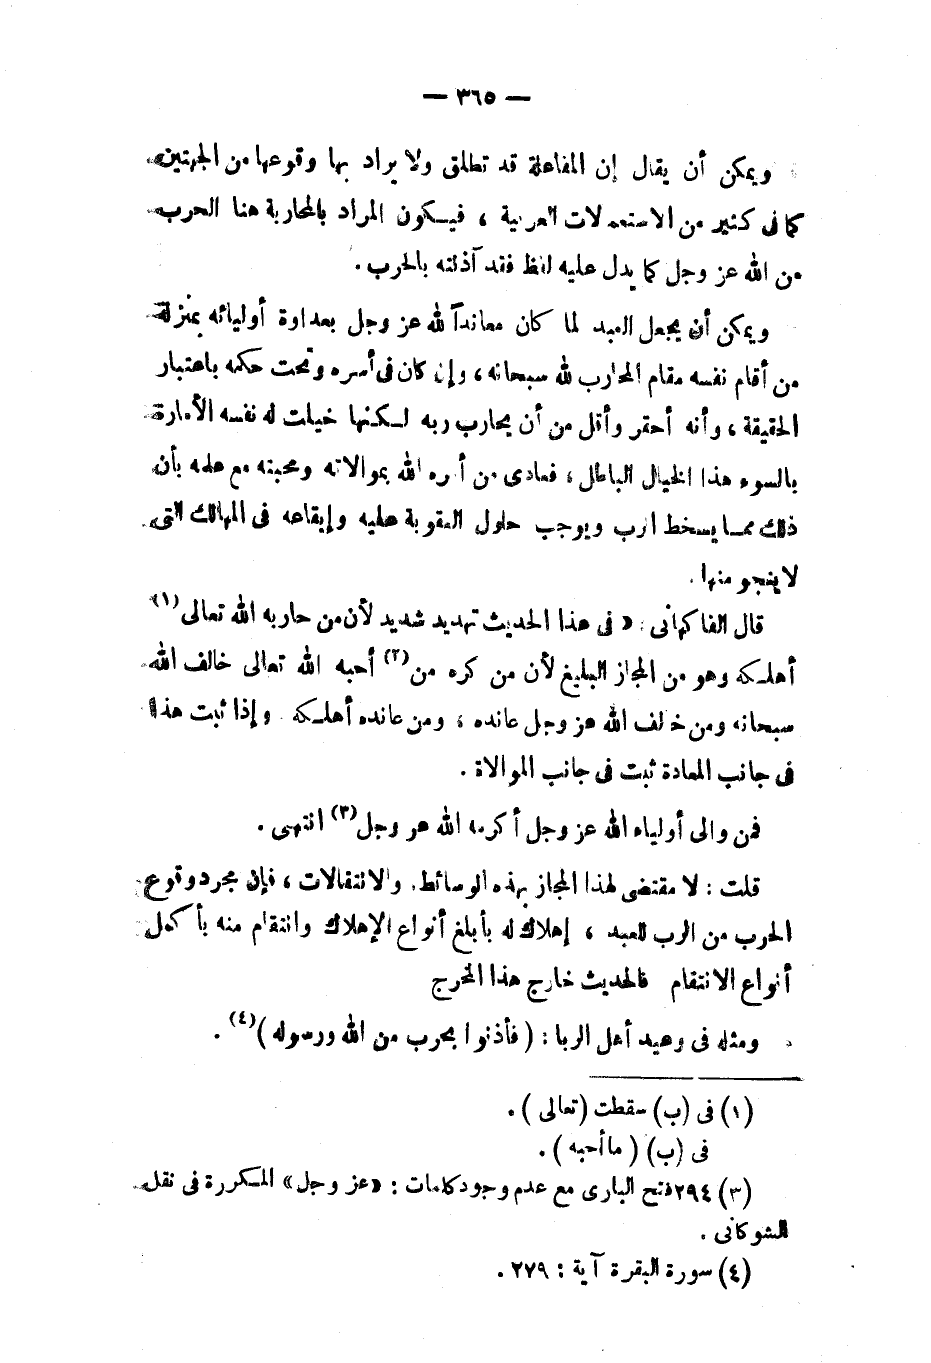 — ٣٦٥ —
ويمكن أن يقال إن المفاعلة قد تطلق ولا يراد بها وقوعها من الجهتين
كما فى كثير من الاستعمالات العربية ، فيكون المراد بالمحاربة هنا الحرب
من الله عز وجل كما يدل عليه لفظ فقد آذنته بالحرب .
ويمكن أن يجعل العبد لما كان معانداً لله عز وجل بعداوة أوليائه بمنزلة
من أقام نفسه مقام المحارب لله سبحانه ، وإن كان فى أسره وتحت حكمه باعتبار
الحقيقة ، وأنه أحقر وأقل من أن يحارب ربه لكنها خيلت له نفسه الأمارة
بالسوء هذا الخيال الباطل ، فعادى من أمره الله بموالاته ومحبته مع علمه بأن
ذلك مما يسخط الرب ويوجب حلول العقوبة عليه وإيقاعه فى المهالك التى
لا ينجو منها .
قال الفاكهانى : « فى هذا الحديث تهديد شديد لأن من حاربه الله تعالى (١)
أهلكه وهو من المجاز البليغ لأن من كره من (٢) أحبه الله تعالى خالف الله
سبحانه ومن خالف الله عز وجل عانده ، ومن عانده أهلكه وإذا ثبت هذا
فى جانب المعادة ثبت فى جانب الموالاة .
فمن والى أولياء الله عز وجل أكرمه الله عز وجل (٣) انتهى .
قلت : لا مقتضى لهذا المجاز بهذه الوسائط والانتقالات ، فإن مجرد وقوع
الحرب من الرب للعبد ، إهلاك له بأبلغ أنواع الإهلاك وانتقام منه بأكمل
أنواع الانتقام فالحديث خارج هذا المخرج
ومثله فى وعيد أهل الربا : ( فأذنوا بحرب من الله ورسوله ) (٤) .
(١) فى (ب) سقطت (تعالى ) .
فى (ب) ( ما أحبه ) .
(٣) ٢٩٤ فتح البارى مع عدم وجود كلمات : «عز وجل» المكررة فى نقل
الشوكانى .
(٤) سورة البقرة آية : ٢٧٩ .